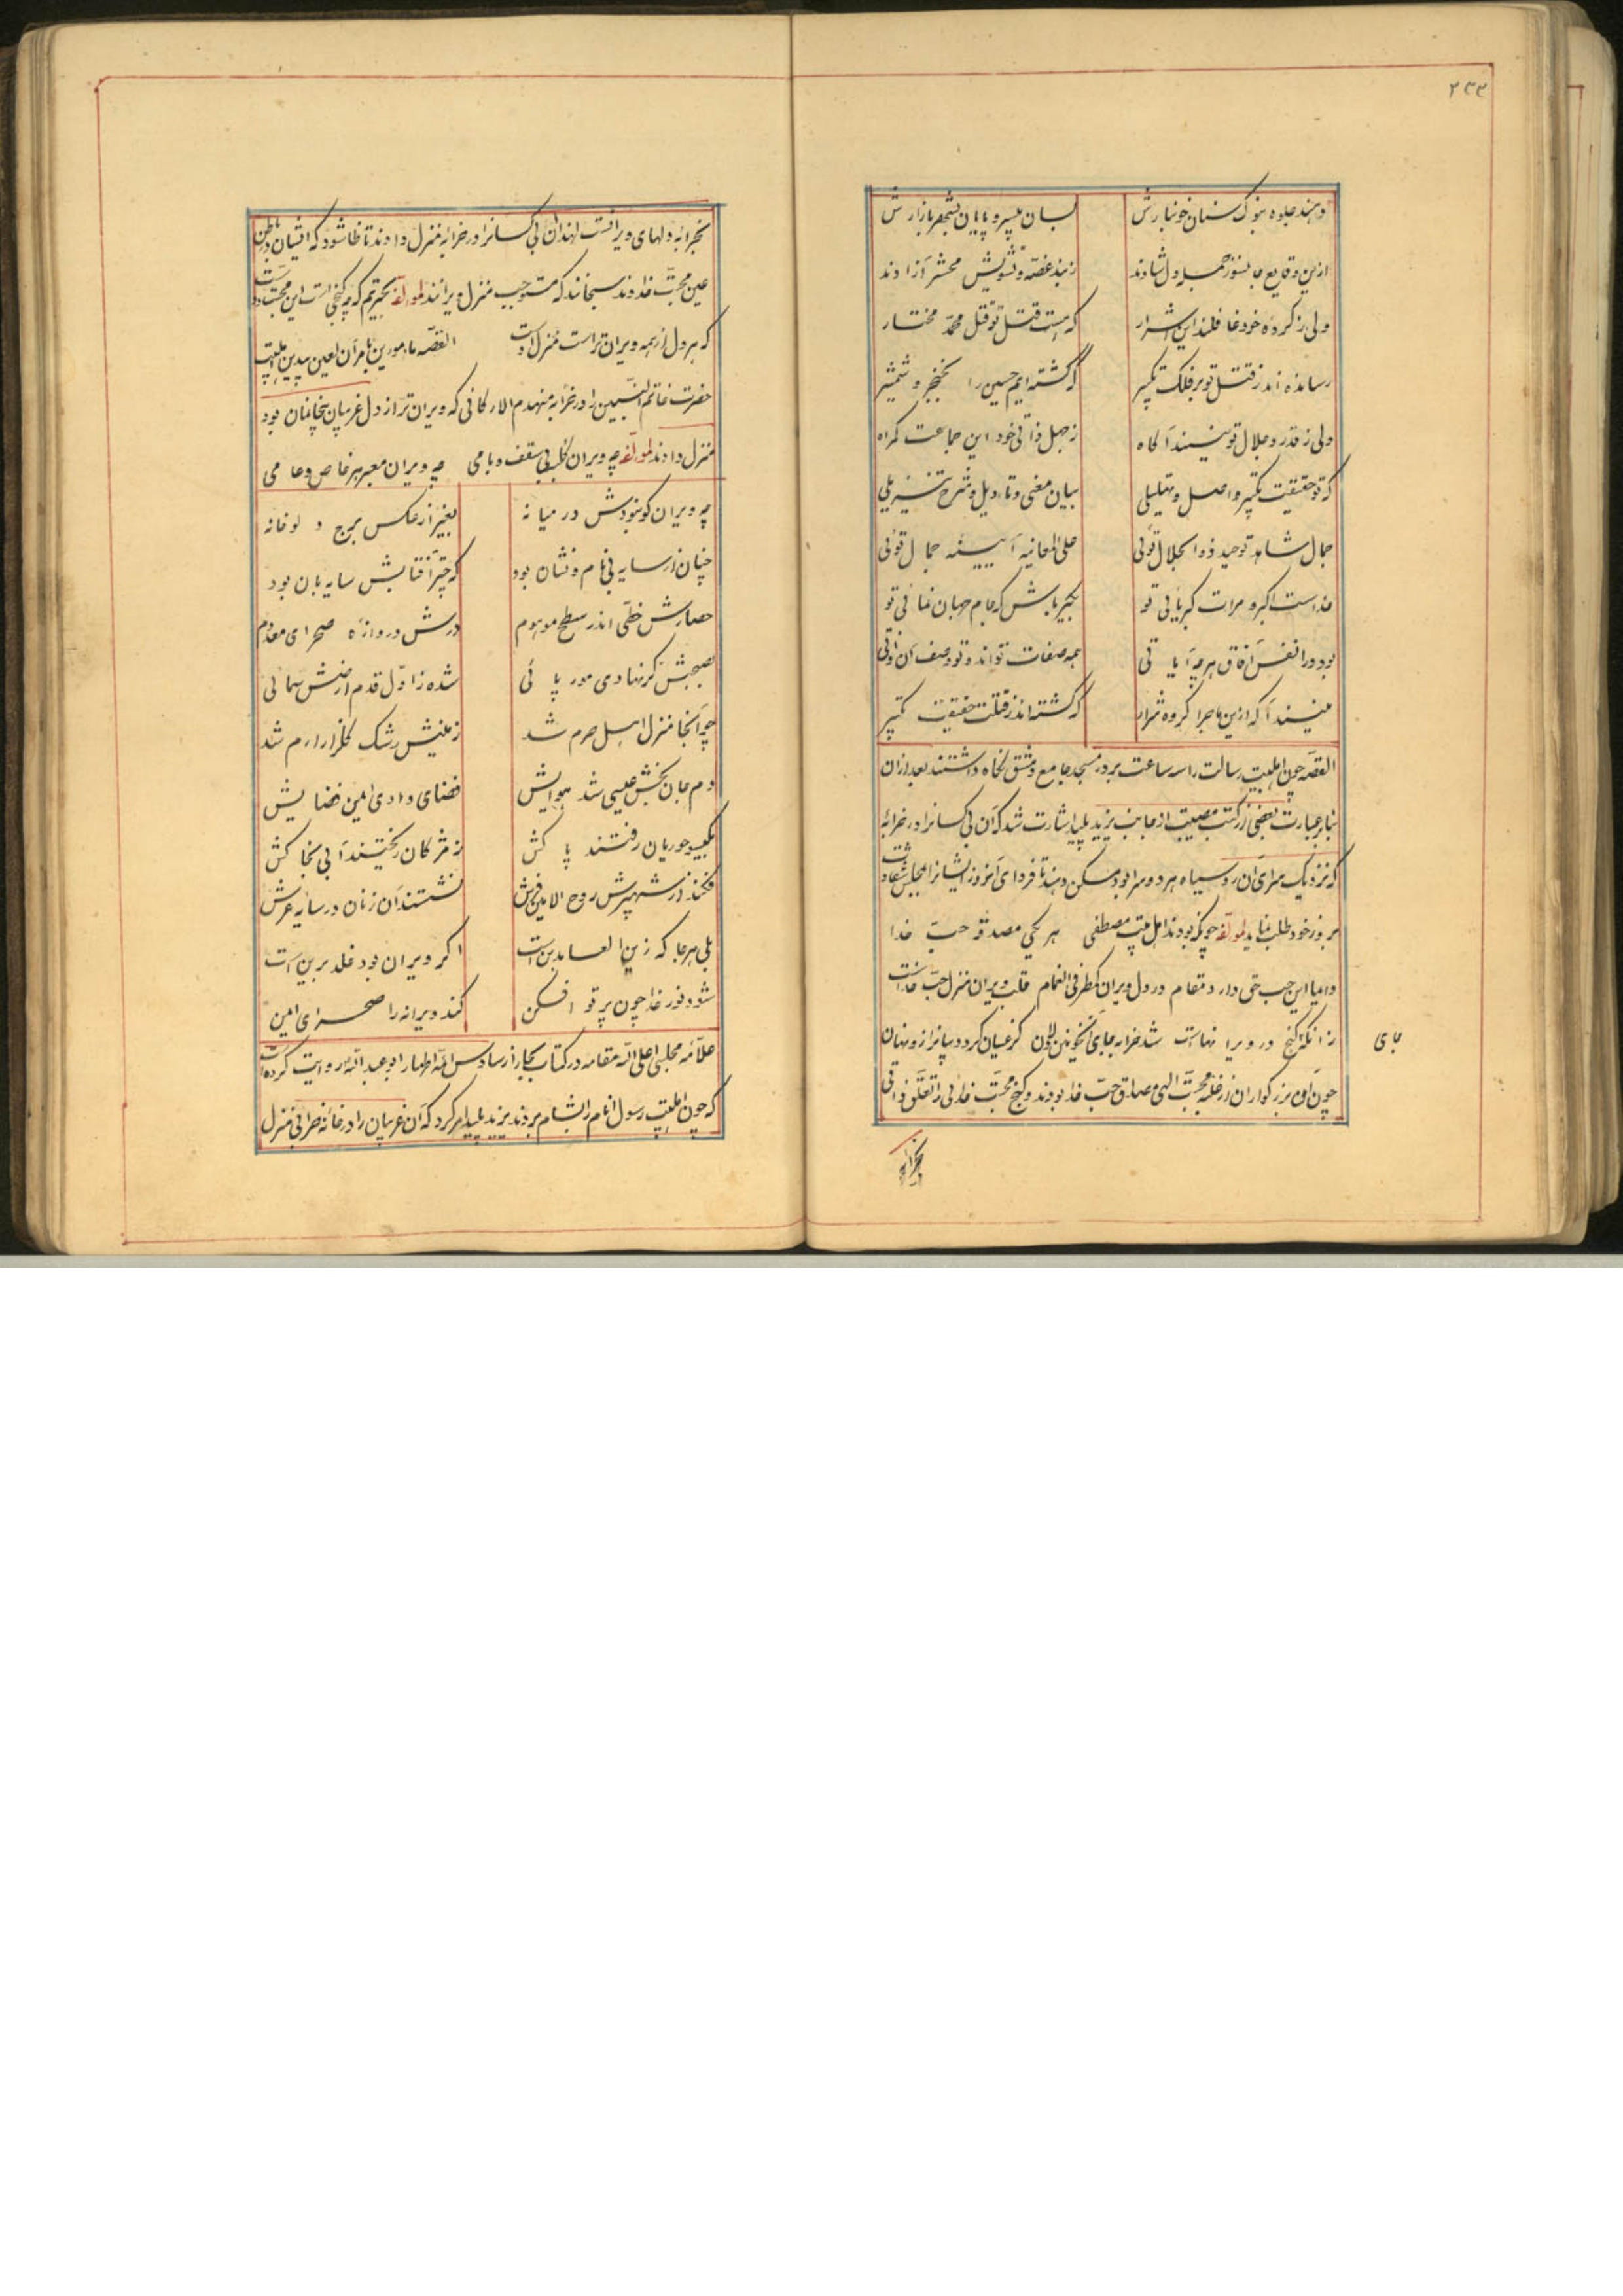 ۲۳۳
دهند جلوه بنوک سنان خونبارش لسان سپر و پایان بشهر بازارش
ازین وقایع جانسوز جمله دل شادند ز بند غصه و تشویش محشر آزادند
ولی ز کرده خود غافلند این اشرار که هست قتل تو قتل محمد مختار
رسانده اند ز قتل تو بر فلک تکبیر که کشته ایم حسین را بخنجر و شمشیر
ولی ز قدر و جلال تو نیستند آکاه ز جهل ذاتی خود این جماعت کمراه
که تو حقیقت تکبیر و اصل و تهلیلی بیان معنی و تاویل و شرح تنزیلی
جمال شاهد توحید ذوالجلال توئی علی العانیه آیینه جمال توئی
خداست اکبر و مرات کبریائی تو بکبریاش که جام جهان نمائی تو
بود در انفس و آفاق هر چه آیاتی همه صفات تواند و تو وصف آن ذاتی
نیستند آکه ازین ماجرا کروه شرار که کشته اند ز قتلت حقیقت تکبیر
القصه چون اهلبیت رسالت را سه ساعت بر در مسجد جامع دمشق نکاه داشتند بعد ازان
بنابر عبارت بعضی از کتب مصیبت از جانب یزید پلید اشارت شد که آن بی کسانرا در خرابه
که نزدیک سرای آن روسیاه هر دو سرا بود مسکن دهند تا فردای آنروز ایشانرا بمجلس شقاوت
بروز خود طلب نماید لمولفه چونکه بودند اهل بیت مصطفی هر یکی مصدوق حب خدا
دامیا این حب حق دارد مقام در دل ویران کمطر فی الغمام قلب ویران منزل حب خداست
زانکه کنج در ویرا نهاست شد خرابه جای انکونین لاون کز عیان کردد بما نراز و نهان
جای
چون آن بزرکواران از غلبه محبت الهی مصداق حب خدا بودند و کنج محبت خدائی را تعلق ذاتی
بخرابه
بخرابه دلهای ویرانست لهذا آن بی کسانرا در خرابه منزل دادند تا ظاهر شود که ایشان در باطن
عین محبت خداوند سبحانند که مستوجب منزل ویرانند لمولفه بحیرتم که چه کنجی است این محبت دوست
که هر دل از همه ویران تراست منزل اوست القصه مامورین بامر آن لعین بیدین اهلبیت
حضرت خاتم النبیین را در خرابه منهدم الارکانی که ویران تر از دل غریبان بیخانمان بود
منزل دادند لمولفه چه ویران کلبه بی سقف و بامی چه ویران معبر هر خاص و عامی
چه ویران کو نبودش در میانه بغیر از عکس برج و لوخانه
چنان از سایه بی نام و نشان بود که چتر آفتابش سایه بان بود
حصارش خطی اندر سطح موهوم درش دروازه صحرای معدوم
بصبحش کر نهادی مور پائی شده ز اول قدم ارضش سمائی
چه آنجا منزل اهل حرم شد زمینش رشک کلزار ارم شد
دم جان بخش عیسی شد هوایش فضای وادی ایمن فضایش
بکیسو حوریان رفتند پاکش ز مژکان ریختند آبی بخاکش
فکند از شهپرش روح الامین فرش نشستند آن زنان در سایه عرش
بلی هر جا که زین العابدین است اکر ویران بود خلد برین است
شود نور خدا چون پرتو افکن کند ویرانه را صحرای ایمن
علامه مجلسی اعلی الله مقامه در کتاب بحار از سادس ائمه اطهار ابو عبدالله روایت کرده است
که چون اهلبیت رسول انام را بشام بردند یزید پلید امر کرد که آن غریبان را در خانه خرابی منزل